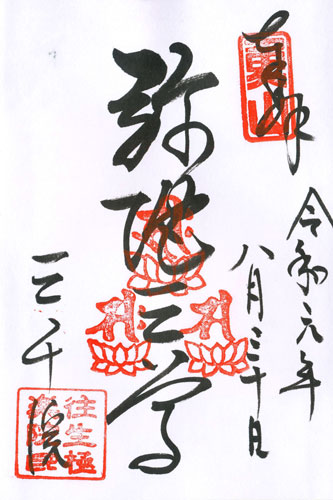 奉拝
令和元年
八月三十日
弥陀三尊
三千院
往生極